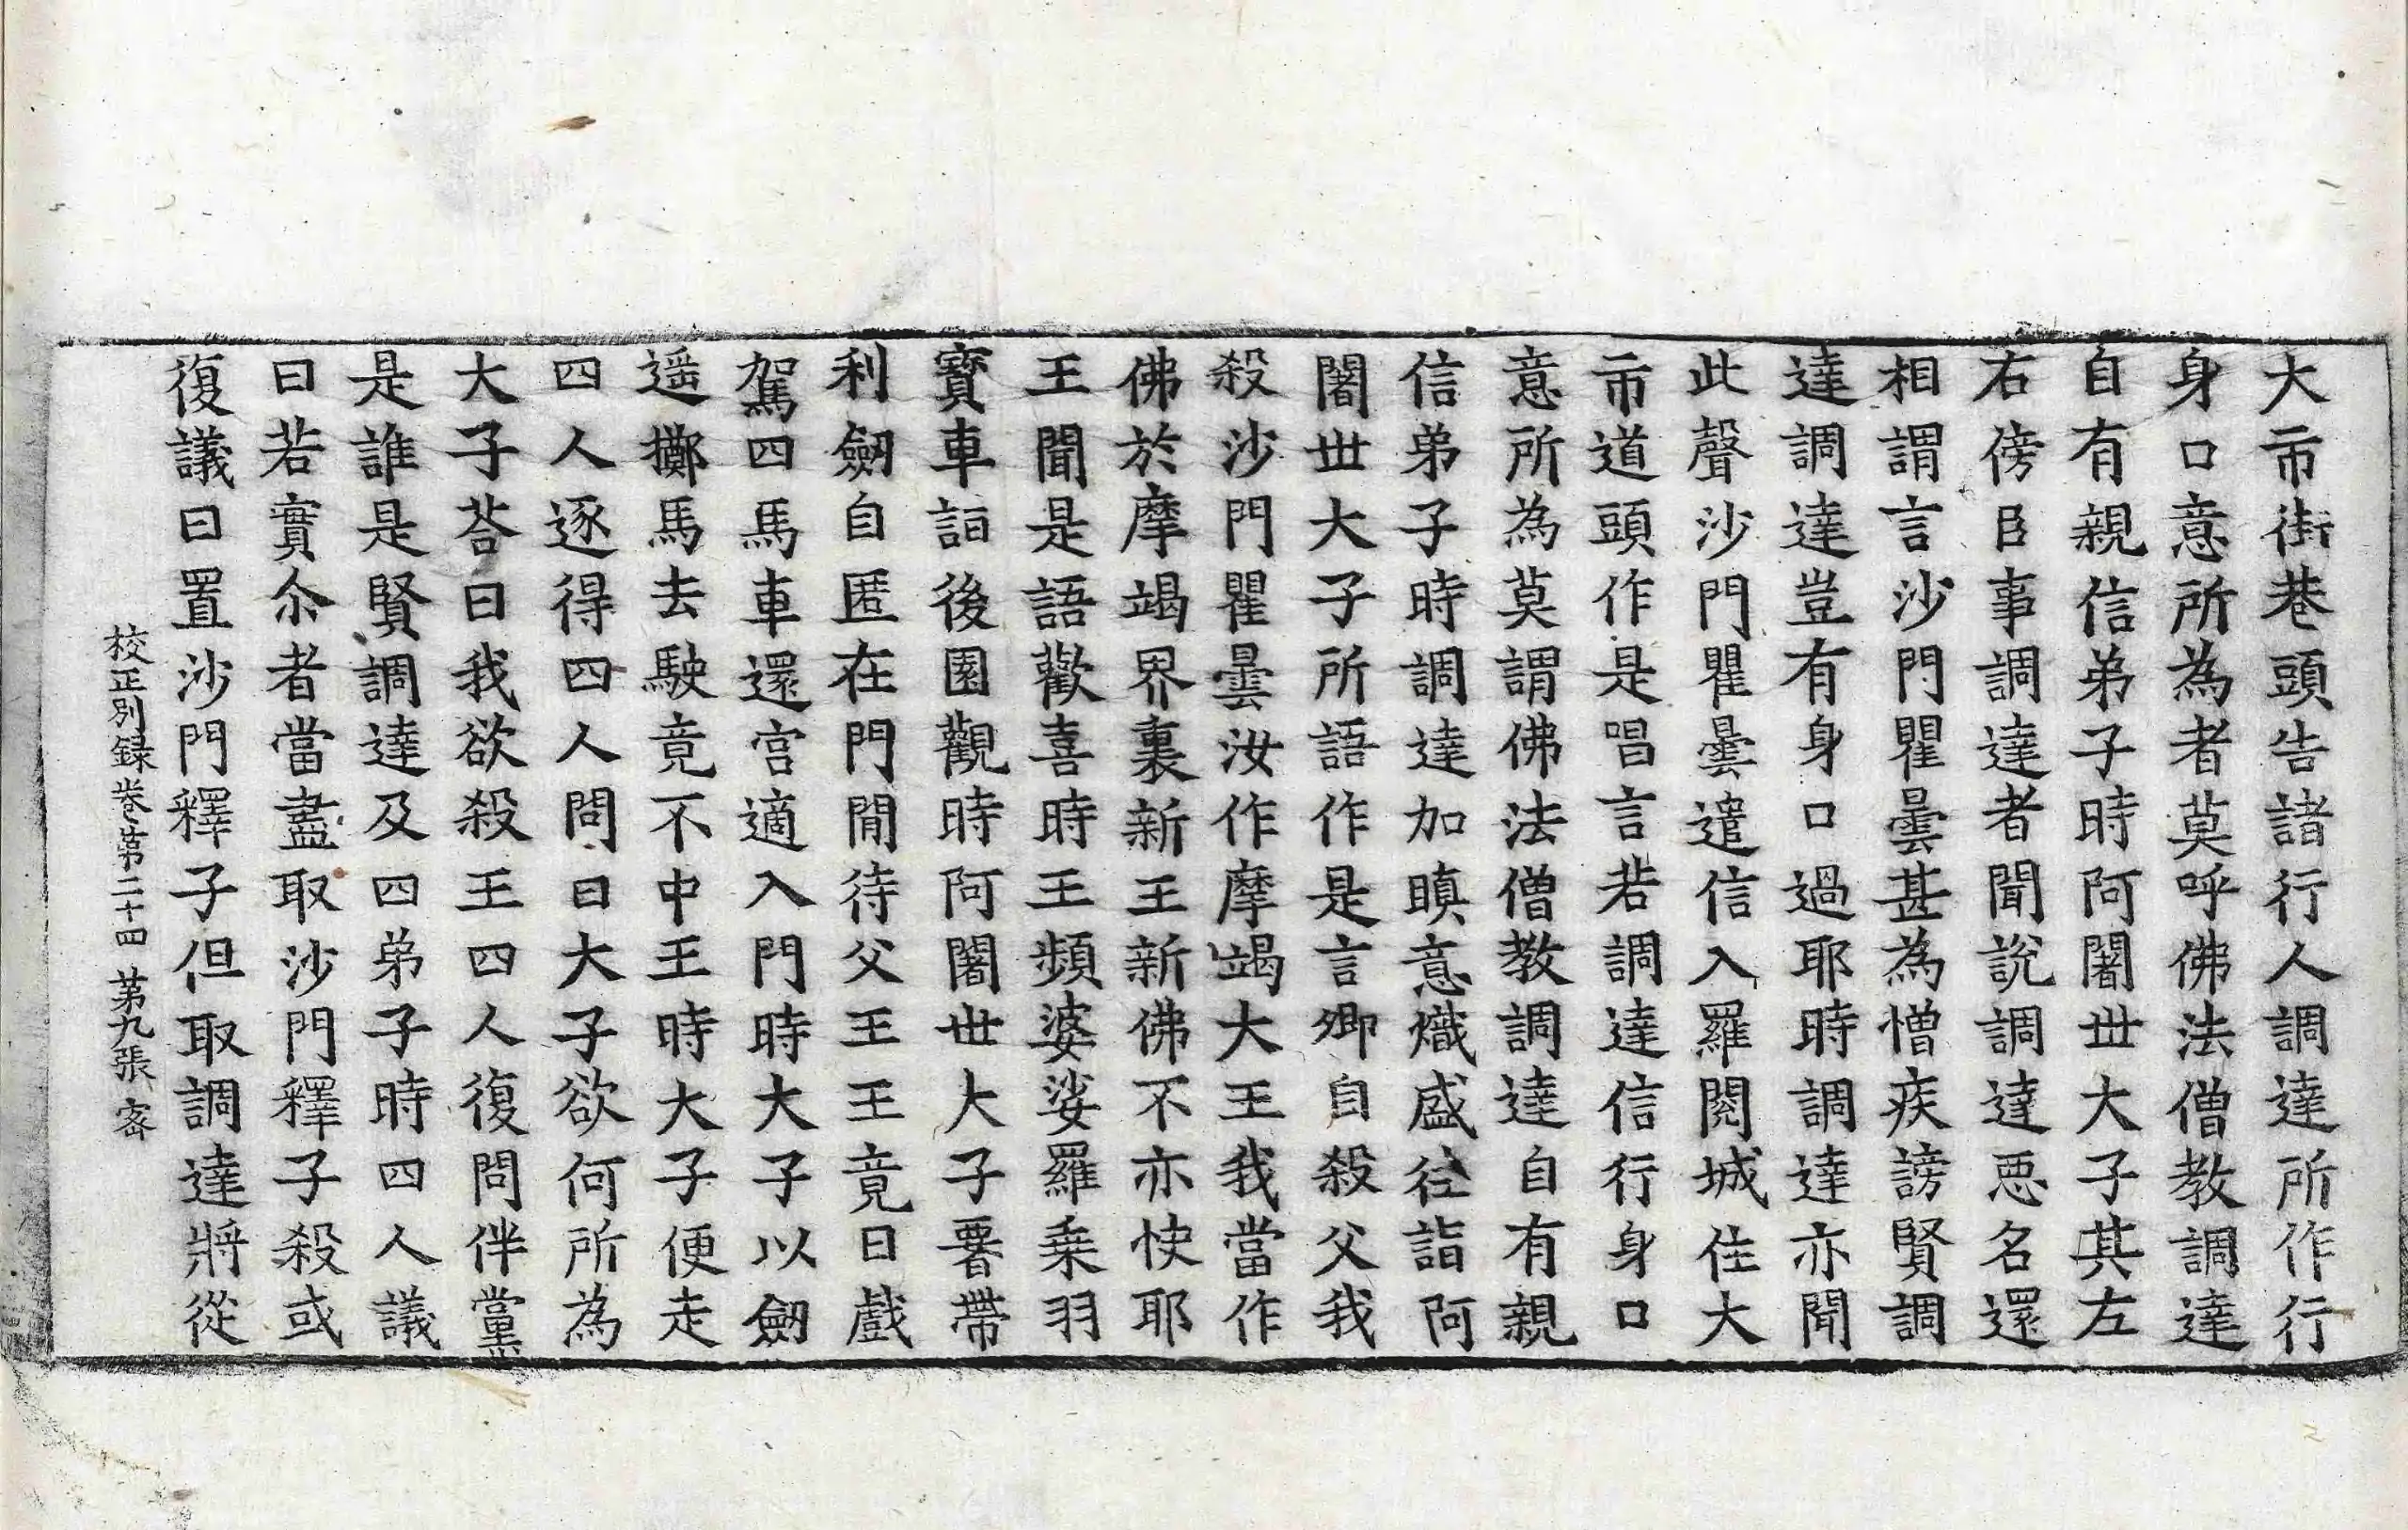 大市街巷頭告諸行人調達所作行
身口意所為者莫呼佛法僧教調達
自有親信弟子時阿闍世大子其左
右傍臣事調達者聞說調達惡名還
相謂言沙門瞿曇甚為憎疾謗賢調
達調達豈有身口過耶時調達亦聞
此聲沙門瞿曇遣信入羅閱城住大
市道頭作是唱言若調達信行身口
意所為莫謂佛法僧教調達自有親
信弟子時調達加瞋意熾盛往詣阿
闍世大子所語作是言卿自殺父我
殺沙門瞿曇汝作摩竭大王我當作
佛於摩竭界裏新王新佛不亦快耶
王聞是語歡喜時王頻婆娑羅乘羽
寶車詣後園觀時阿闍世大子要帶
利劒自匿在門閒待父王王竟日戲
駕四馬車還宮適入門時大子以劒
遥擲馬去駛竟不中王時大子便走
四人逐得四人問曰大子欲何所為
大子荅曰我欲殺王四人復問伴黨
是誰是賢調達及四弟子時四人議
曰若實尒者當盡取沙門釋子殺或
復議曰置沙門釋子但取調達將從
校正別録卷第二十四 第九張 密